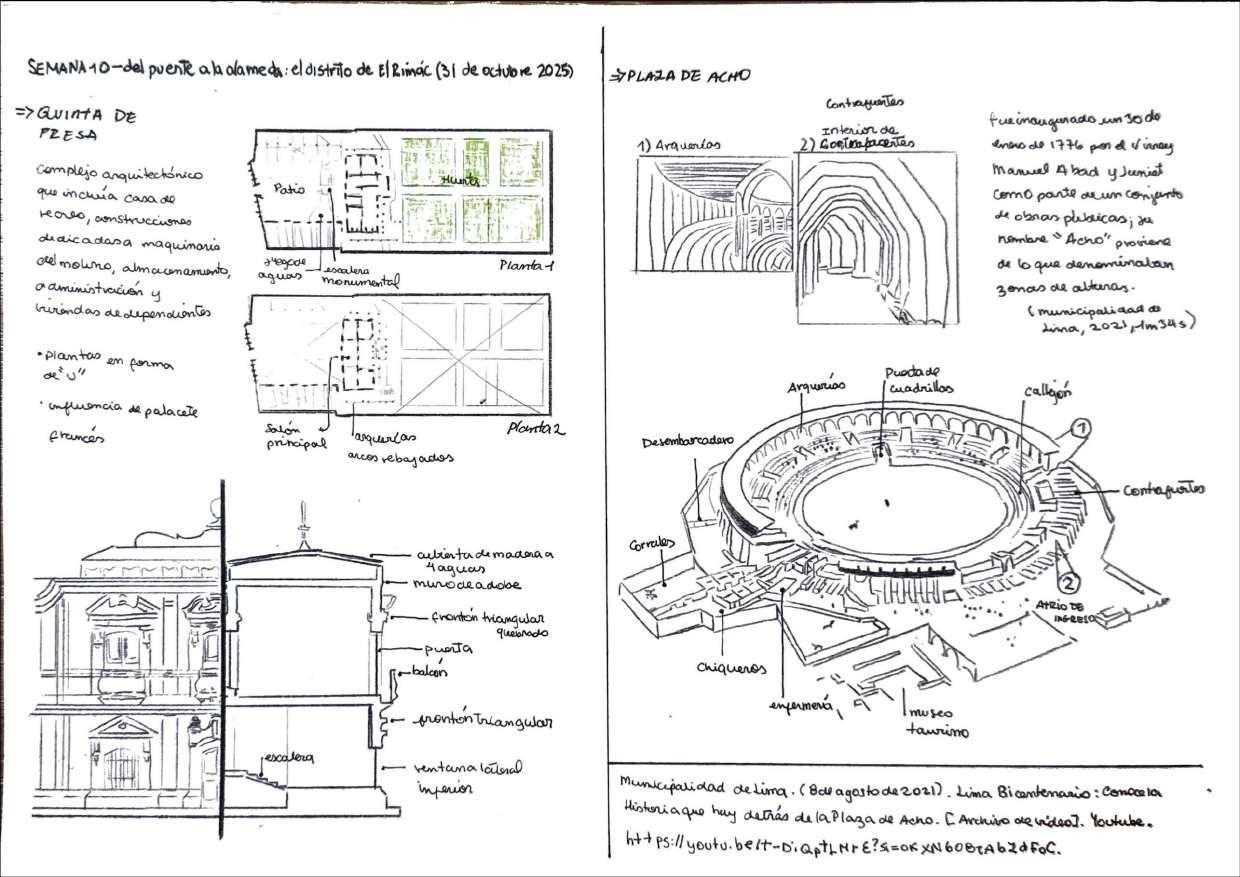 SEMANA 10 - del puente a la alameda: el distrito de El Rimác (31 de octubre 2025)
=> QUINTA DE
PRESA
complejo arquitectónico
que incluía casa de
recreo, construcciones
dedicadas a maquinaria
del molino, almacenamiento,
administración y
viviendas de dependientes
• plantas en forma
de "U"
• influencia de palacete
francés
Patio
Huerta
juego de
aguas
escalera
monumental
Planta 1
salón
principal
arquerías
arcos rebajados
Planta 2
cubierta de madera a
4 aguas
muro de adobe
frontón triangular
quebrado
puerta
balcón
frontón triangular
escalera
ventana lateral
inferior
=> PLAZA DE ACHO
Contrafuertes
1) Arquerías
Interior de
2) Contrafuertes
fue inaugurado un 30 de
enero de 1776 por el virrey
Manuel Abad y Juniet
como parte de un conjunto
de obras públicas; su
nombre "Acho" proviene
de lo que denominaban
zonas de alturas.
(municipalidad de
Lima, 2021, 1m34s)
Arquerías
Puerta de
cuadrillas
callejón
Desembarcadero
1
Contrafuertes
Corrales
2
ATRIO DE
INGRESO
chiqueros
enfermería
museo
taurino
Municipalidad de Lima. (8 de agosto de 2021). Lima Bicentenario: Conoce la
Historia que hay detrás de la Plaza de Acho. [Archivo de video]. Youtube.